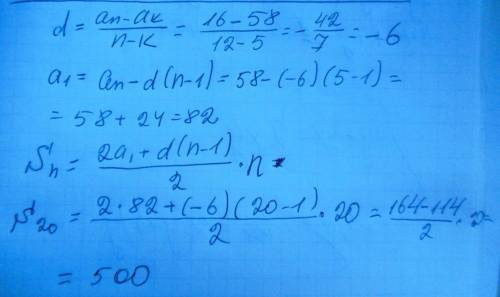 d = (an - ak)/(n - k) = (16 - 58)/(12 - 5) = - 42/7 = -6
a1 = an - d(n-1) = 58 - (-6)(5-1) =
= 58 + 24 = 82
Sn = (2a1 + d(n-1))/2 · n
S20 = (2·82 + (-6)(20-1))/2 · 20 = (164-114)/2 ·
= 500